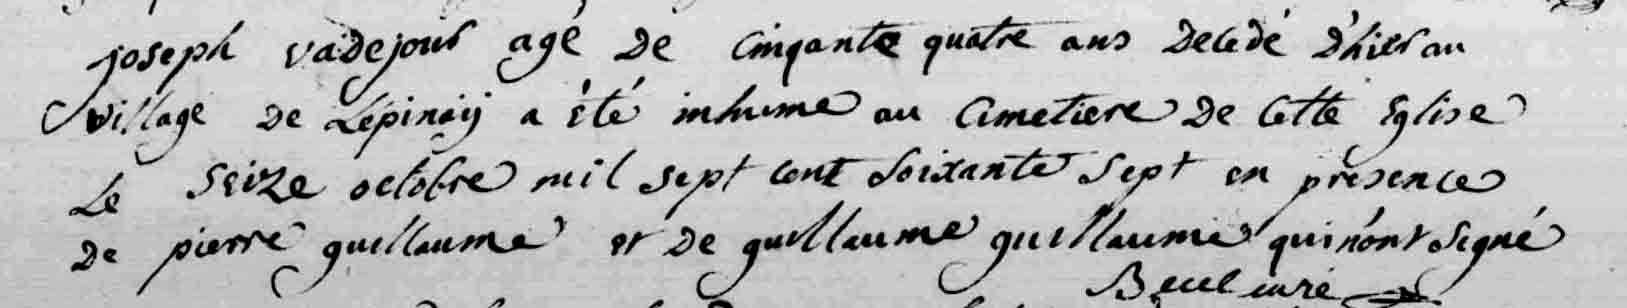 joseph vadejour agé de cinqante quatre ans decedé d'hier au
village de Lépinaÿ a été inhumé au cimetiere de cette Eglise
Le seize octobre mil sept cent soixante sept en présence
de pierre guillaume et de guillaume guillaume qui n'ont signé
curé